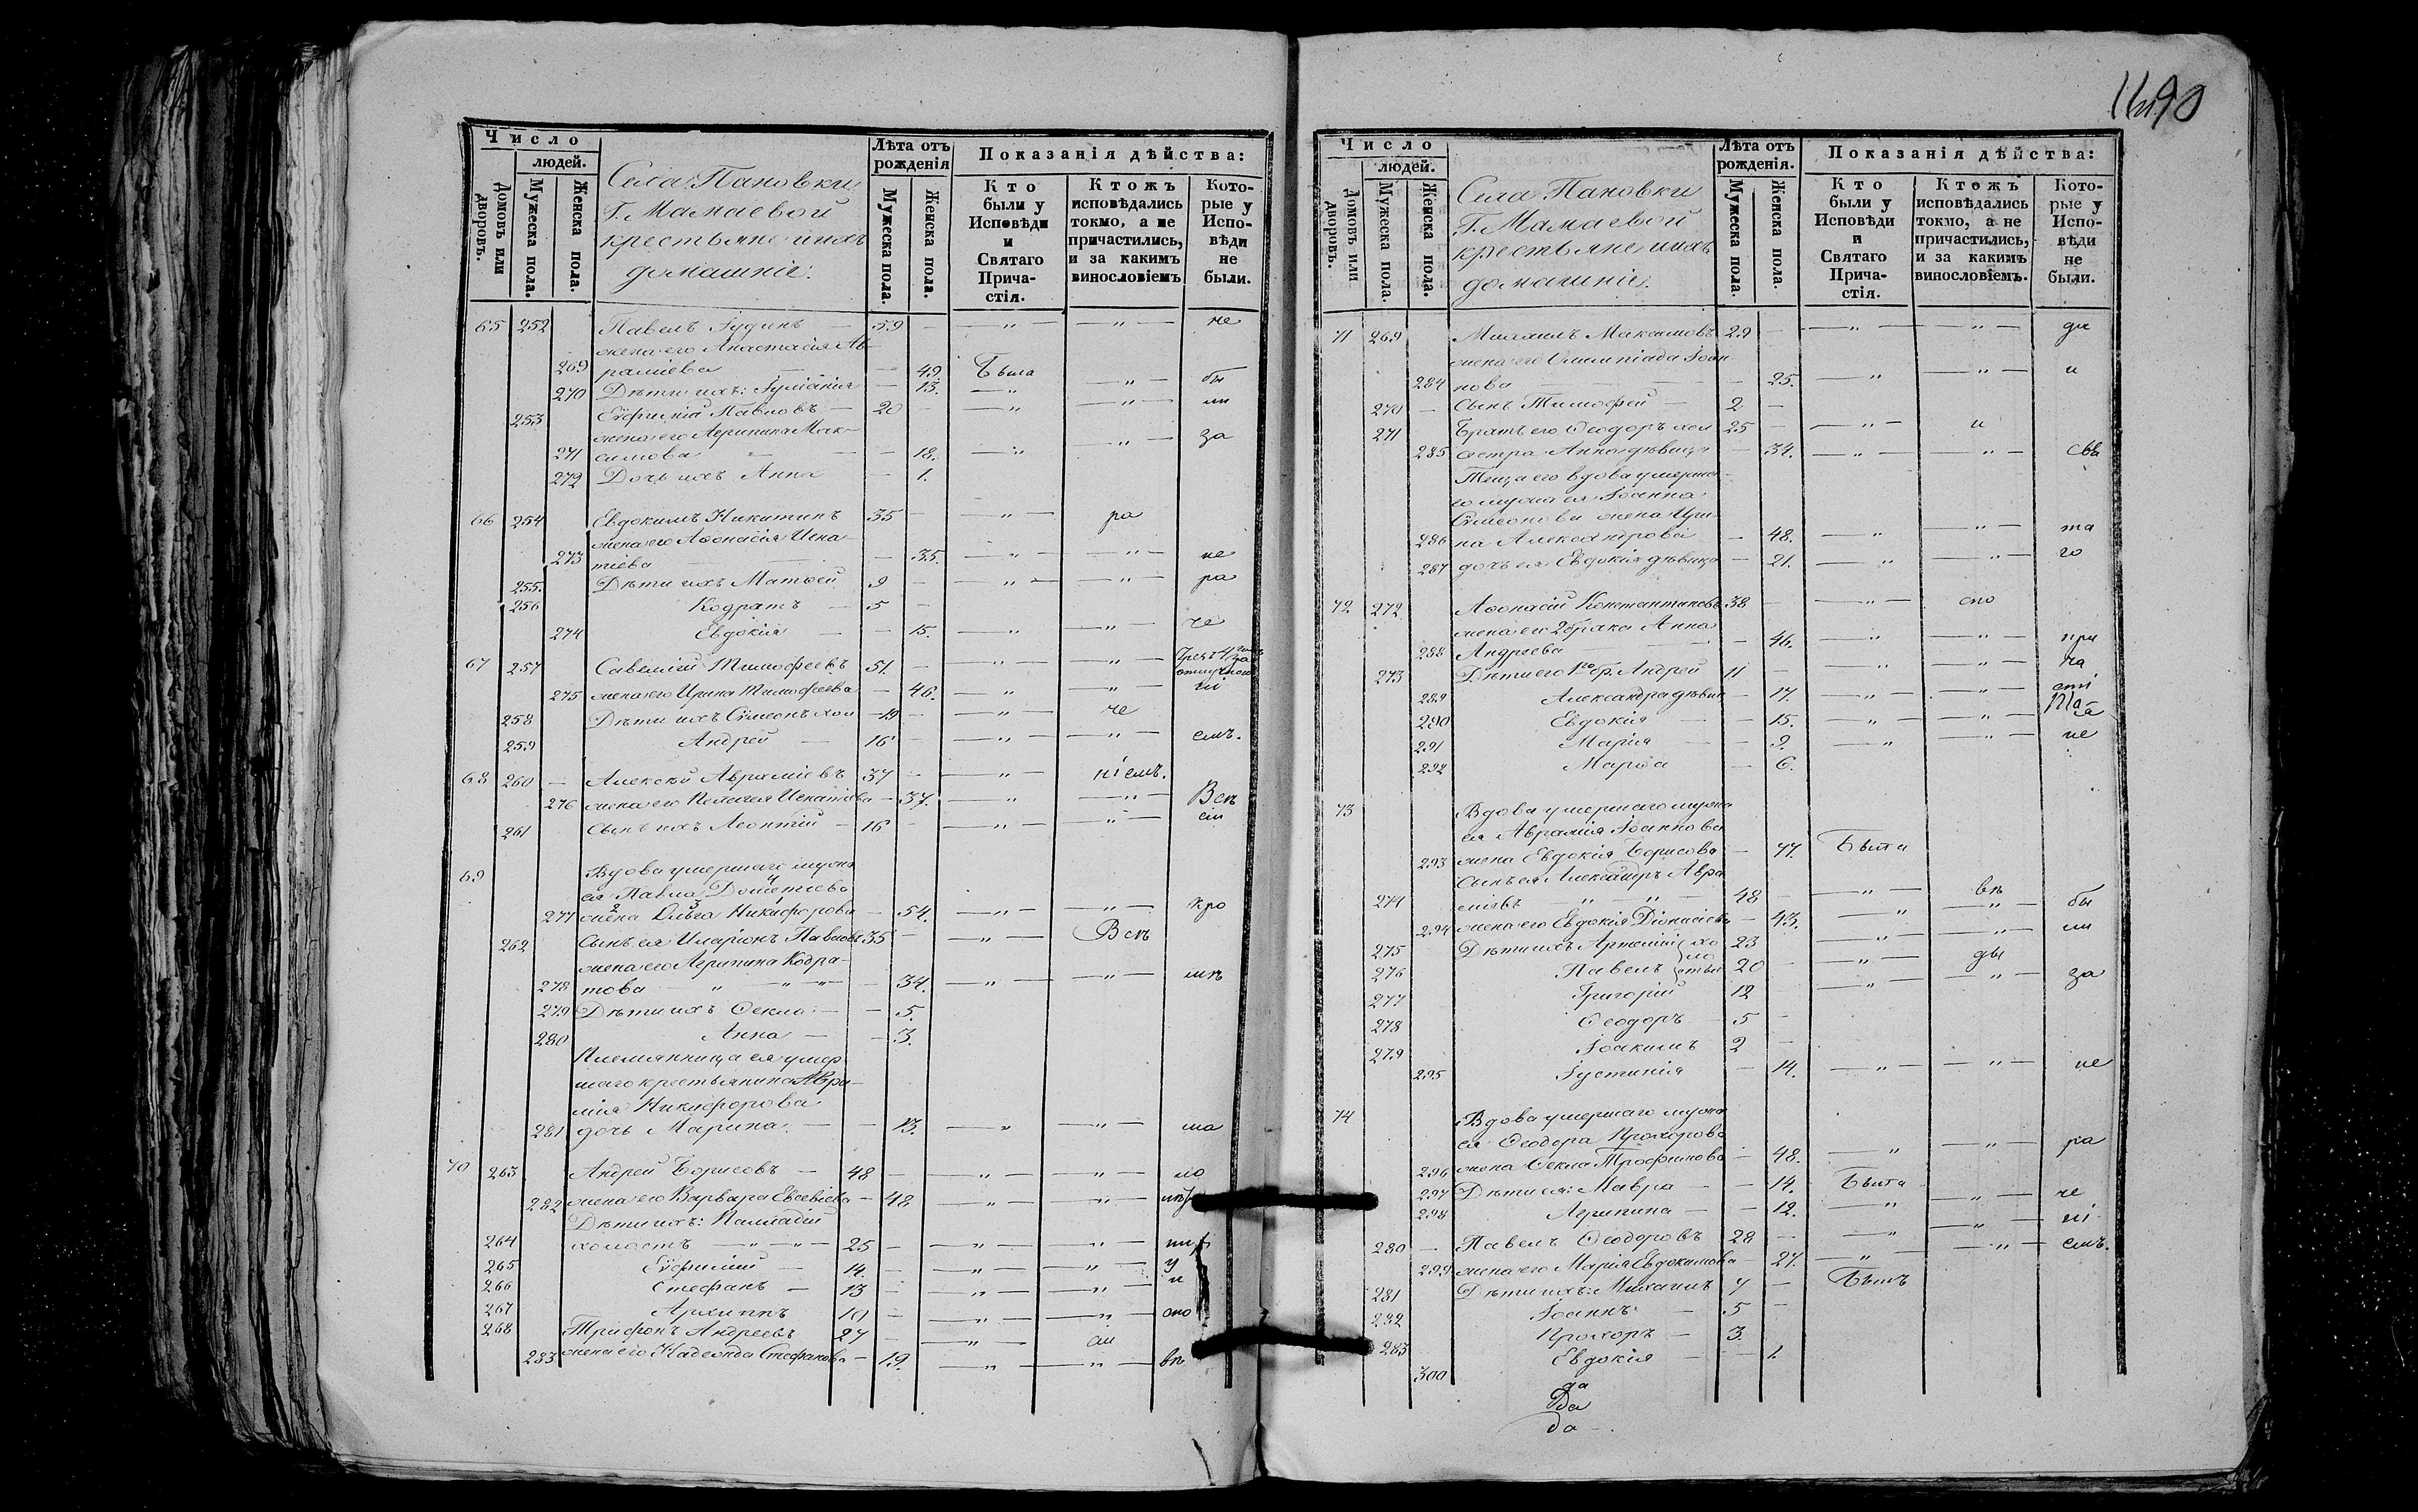 1690
Число
людей.
Домовъ или дворовъ.
Мужеска пола.
Женска пола.
Села Пановки
Г. Мамаевой
крестьяне и ихъ
домашніе.
Лѣта отъ рожденія
Мужеска пола.
Женска пола.
Показанія дѣйства:
Кто были у Исповѣди и Святаго Причастія.
Ктожъ исповѣдались токмо, а не причастились, и за какимъ винословіемъ
Которые у Исповѣди не были.
65 252 Павелъ Іудинъ — 59 — „ — — „ — не
жена его Анастасія Ав-
269 раміева — 49 Была
270 Дѣти ихъ: Іуліанія — 13. — „ — — „ — бы
253 Евфимій Павловъ — 20 — — „ — — „ — ли
жена его Агрипина Мак-
271 симова — 18. — „ — — „ — за
272 Дочь ихъ Анна — 1.
66 254 Евдокимъ Никитинъ 35 — — „ — ра
жена его Афонасія Игна-
273 тіева — 35. — „ — — „ — не
255. Дѣти ихъ Матвей 9 — — „ — — „ — ра
256 Кодратъ — 5 —
274 Евдокія — 15. — „ — — „ — че
67 257 Савелій Тимофеевъ 51. — — „ — — „ —
275 жена его Ирина Тимофеева — 46. — „ — — „ — ні
258 Дѣти ихъ Симеонъ хол 19 — — „ — че
259 Андрей — 16 — — „ — — „ — емъ.
68 260 — Алексѣй Авраміевъ 37 — — „ — ніемъ.
276 жена его Пелагея Игнатіева — 37. — „ — — „ — Всѣ
261 Сынъ ихъ Леонтій — 16 — — „ — — „ — сіи
69 Вдова умершаго мужа
ея Павла Дометіева
277 жена Ольга Никифорова — 54. — „ — — „ — кро
262 Сынъ ея Иларіонъ Павловъ 35 — — „ — Всѣ
жена его Агрипина Кодра-
278 това — „ — „ — — 34. — „ — — „ — мѣ
279 Дѣти ихъ Ѳекла — 5.
280 Анна — 3.
Племянница ея умер
шаго крестьянина Авра-
мія Никифорова
281 дочь Марина — 13. — „ — — „ — ма
70 263 Андрей Борисовъ — 48 — — „ — — „ — ло
282 жена его Варвара Евсевіева — 48 — „ — — „ —
Дѣти ихъ: Палладій
264 холостъ — „ — „ — 25 — — „ — — „ —
265 Евфимій — 14. — — „ — — „ — у
266 Стефанъ — 13 — — „ — — „ — и
267 Архиппъ 10 — — „ — — „ —
268 Трифонъ Андреевъ 27 — — „ —
283 жена его Надежда Стефанова — 19. — „ — — „ — вѣ
Число
людей.
Домовъ или дворовъ.
Мужеска пола.
Женска пола.
Села Пановки
Г. Мамаевой
крестьяне и ихъ
домашніе.
Лѣта отъ рожденія.
Мужеска пола.
Женска пола.
Показанія дѣйства:
Кто были у Исповѣди и Святаго Причастія.
Ктожъ исповѣдались токмо, а не причастились, и за какимъ винословіемъ.
Которые у Исповѣди не были.
71 269 Михаилъ Максимовъ 29 — — „ — — „ — ди
жена его Олимпіада Іоан-
284 нова — 25. — „ — — „ — и
270 — Сынъ Тимофей — 2 —
271 Братъ его Ѳеодоръ хол 25 — — „ — и
285 сестра Анна дѣвица — 34. — „ — — „ — свя
Теща его вдова умерша-
го мужа ея Іоанна
Симеонова жена Ири-
286 на Александрова — 48. — „ — — „ — та
287 дочь ея Евдокія дѣвица — 21. — „ — — „ — го
72 272 Афонасій Константиновъ 38 — — „ — сто
жена его 2 брака Анна
288 Андреева — 46. — „ — — „ — при
273 Дѣти его 1го бр. Андрей 11 — — „ — — „ — ча
289 Александра дѣвица — 17. — „ — — „ — сті
290 Евдокія — 15. — „ — — „ —
291 Марія — 9. — „ — — „ — не
292 Марѳа — 6.
73 Вдова умершаго мужа
ея Аврамія Іоаннова
293 жена Евдокія Борисова — 77. Была
Сынъ ея Александръ Авра
274 міевъ — „ — „ — 48 — — „ — вѣ
294 жена его Евдокія Діонисіева — 43. — „ — — „ — бы
275 Дѣти ихъ Артемій хо 23 — „ — — „ — ли
276 Павелъ лостые 20 — — „ — ды
277 Григорій 12 — „ — — „ — за
278 Ѳеодоръ — 5 —
279 Іоакимъ 2 —
295 Іустинія — 14. — „ — — „ — не
74 Вдова умершаго мужа
ея Ѳеодора Прохорова
296 жена Ѳекла Трофимова — 48. — „ — — „ — ра
297 Дѣти ея: Мавра — 14. Была
298 Агрипина — 12. — „ — — „ — че
280 — Павелъ Ѳеодоровъ 28 — — „ — — „ — ні
299 жена его Марія Евдокимова 27. — „ — — „ — емъ.
281 Дѣти ихъ: Михаилъ 7 — Былъ
282 Іоаннъ — 5 —
283 Прохоръ — 3.
300 Евдокія — 1.